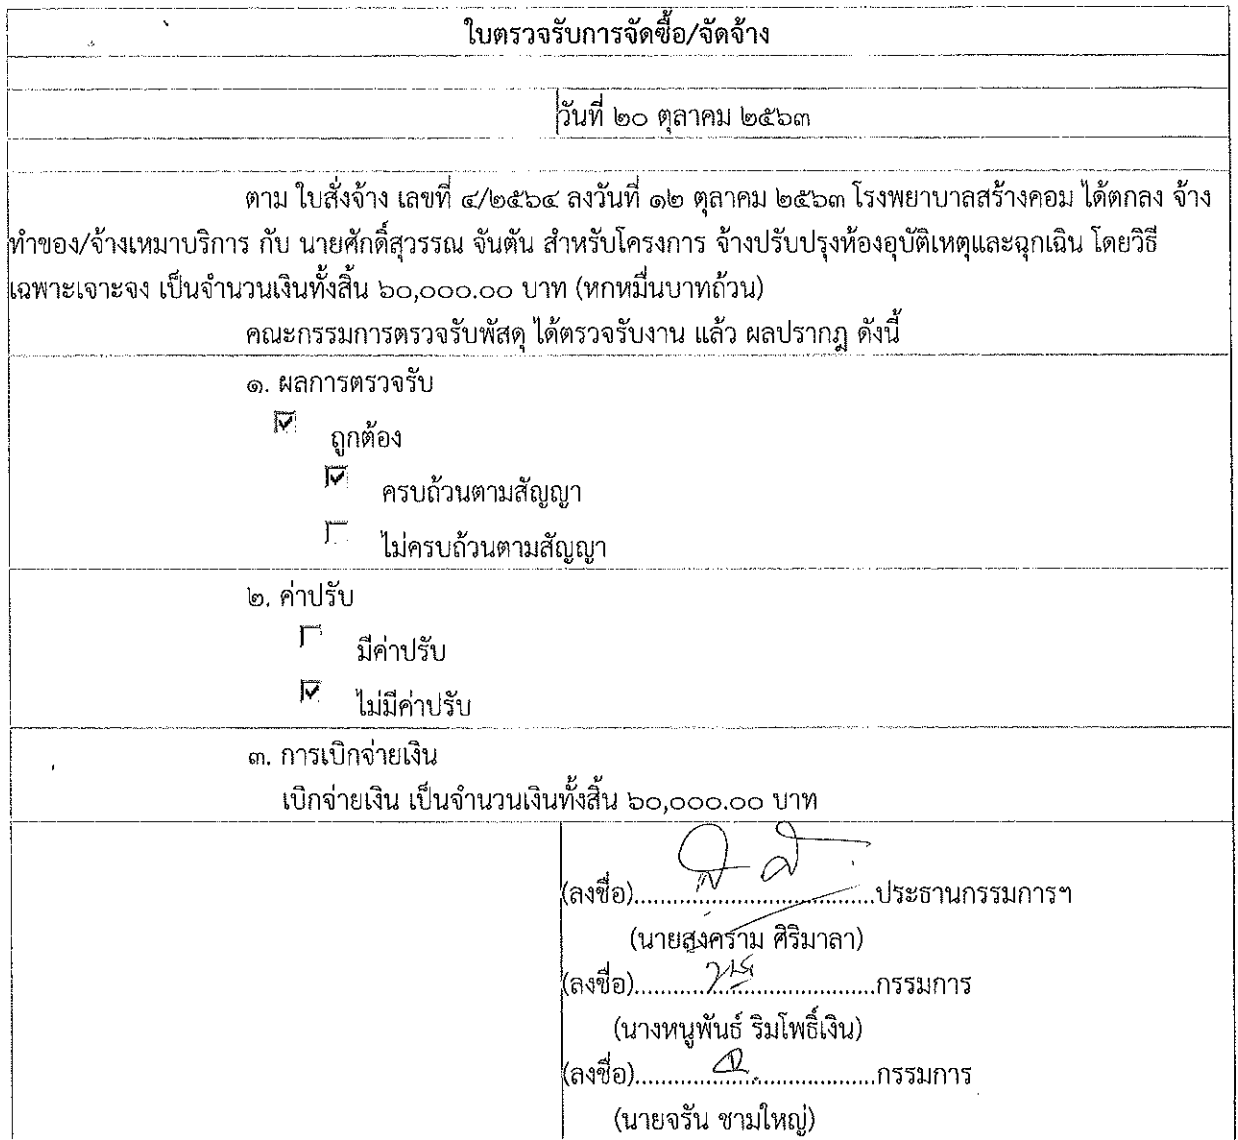 ใบตรวจรับการจัดซื้อ/จัดจ้าง
วันที่ ๒๐ ตุลาคม ๒๕๖๓
ตาม ใบสั่งจ้าง เลขที่ ๔/๒๕๖๔ ลงวันที่ ๑๒ ตุลาคม ๒๕๖๓ โรงพยาบาลสร้างคอม ได้ตกลง จ้าง
ทำของ/จ้างเหมาบริการ กับ นายศักดิ์สุวรรณ จันตัน สำหรับโครงการ จ้างปรับปรุงห้องอุบัติเหตุและฉุกเฉิน โดยวิธี
เฉพาะเจาะจง เป็นจำนวนเงินทั้งสิ้น ๖๐,๐๐๐.๐๐ บาท (หกหมื่นบาทถ้วน)
คณะกรรมการตรวจรับพัสดุ ได้ตรวจรับงาน แล้ว ผลปรากฏ ดังนี้
๑. ผลการตรวจรับ
ถูกต้อง
ครบถ้วนตามสัญญา
ไม่ครบถ้วนตามสัญญา
๒. ค่าปรับ
มีค่าปรับ
ไม่มีค่าปรับ
๓. การเบิกจ่ายเงิน
เบิกจ่ายเงิน เป็นจำนวนเงินทั้งสิ้น ๖๐,๐๐๐.๐๐ บาท
(ลงชื่อ)....................................ประธานกรรมการฯ
(นายสงคราม ศิริมาลา)
(ลงชื่อ)....................................กรรมการ
(นางหนูพันธ์ ริมโพธิ์เงิน)
(ลงชื่อ)....................................กรรมการ
(นายจรัน ชามใหญ่)